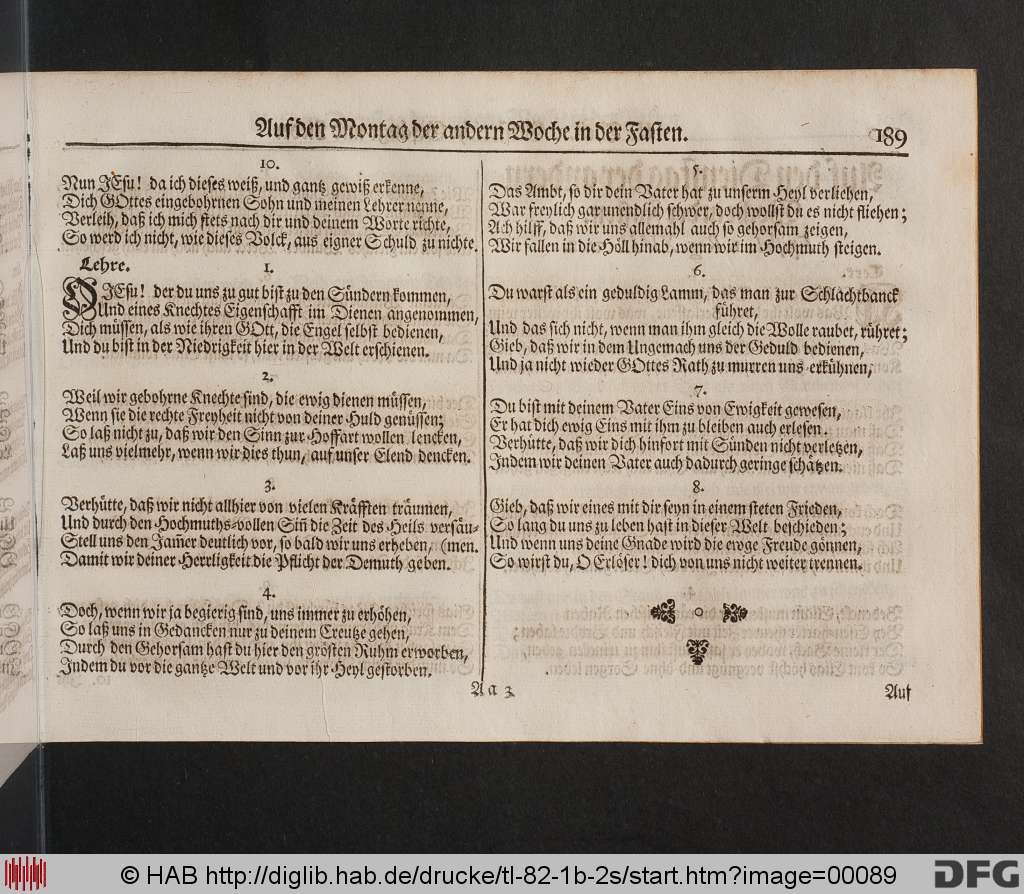 Auf den Montag der andern Woche in der Fasten.
189
10.
Nun JEsu! da ich dieses weiß, und gantz gewiß erkenne,
Dich GOttes eingebohrnen Sohn und meinen Lehrer nenne,
Verleih, daß ich mich stets nach dir und deinem Worte richte,
So werd ich nicht, wie dieses Volck, aus eigner Schuld zu nichte.
Lehre.
1.
O JEsu! der du uns zu gut bist zu den Sündern kommen,
Und eines Knechtes Eigenschafft im Dienen angenommen,
Dich müssen, als wie ihren GOtt, die Engel selbst bedienen,
Und du bist in der Niedrigkeit hier in der Welt erschienen.
2.
Weil wir gebohrne Knechte sind, die ewig dienen müssen,
Wenn sie die rechte Freyheit nicht von deiner Huld genüssen;
So laß nicht zu, daß wir den Sinn zur Hoffart wollen lencken,
Laß uns vielmehr, wenn wir dies thun, auf unser Elend dencken.
3.
Verhütte, daß wir nicht allhier von vielen Kräfften träumen,
Und durch den Hochmuths-vollen Siñ die Zeit des Heils versäu-
Stell uns den Jam̃er deutlich vor, so bald wir uns erheben, (men.
Damit wir deiner Herrligkeit die Pflicht der Demuth geben.
4.
Doch, wenn wir ja begierig sind, uns immer zu erhöhen,
So laß uns in Gedancken nur zu deinem Creutze gehen,
Durch den Gehorsam hast du hier den grösten Ruhm erworben,
Indem du vor die gantze Welt und vor ihr Heyl gestorben.
5.
Das Ambt, so dir dein Vater hat zu unserm Heyl verliehen,
War freylich gar unendlich schwer, doch wollst du es nicht fliehen;
Ach hilff, daß wir uns allemahl auch so gehorsam zeigen,
Wir fallen in die Höll hinab, wenn wir im Hochmuth steigen.
6.
Du warst als ein geduldig Lamm, das man zur Schlachtbanck
führet,
Und das sich nicht, wenn man ihm gleich die Wolle raubet, rühret;
Gieb, daß wir in dem Ungemach uns der Geduld bedienen,
Und ja nicht wieder GOttes Rath zu murren uns erkühnen,
7.
Du bist mit deinem Vater Eins von Ewigkeit gewesen,
Er hat dich ewig Eins mit ihm zu bleiben auch erlesen.
Verhütte, daß wir dich hinfort mit Sünden nicht verletzen,
Indem wir deinen Vater auch dadurch geringe schätzen.
8.
Gieb, daß wir eines mit dir seyn in einem steten Frieden,
So lang du uns zu leben hast in dieser Welt beschieden;
Und wenn uns deine Gnade wird die ewge Freude gönnen,
So wirst du, O Erlöser! dich von uns nicht weiter trennen.
Aa 3
Auf
© HAB http://diglib.hab.de/drucke/tl-82-1b-2s/start.htm?image=00089
DFG